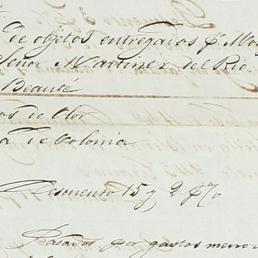 de objetos entregados p.
Señor Martinez del Rio
Beauté
de Olor
de Colonia
Descuento 15 y 2 p%
Pasados por gastos menor